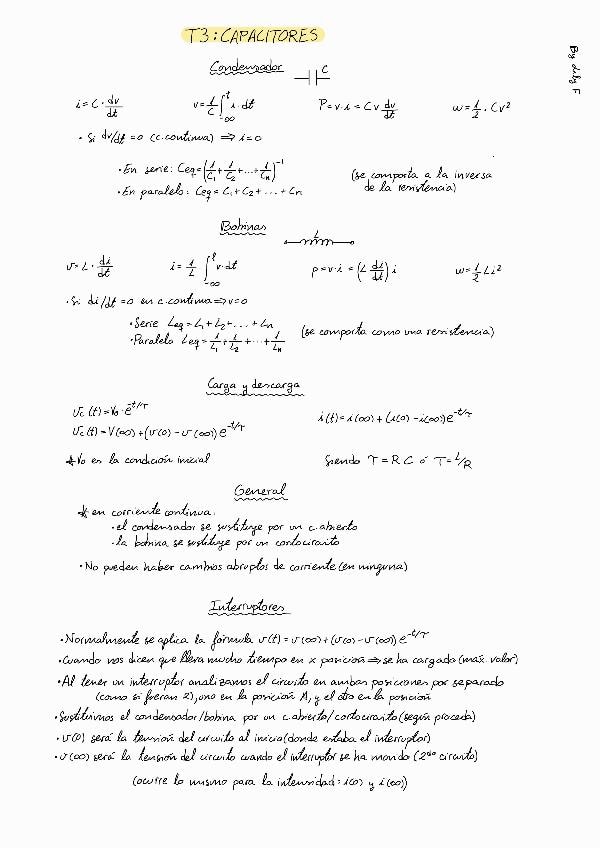 T3: CAPACITORES
By duly F
Condensador
C
i = C · dv/dt    v = 1/C ∫_{-∞}^{t} i · dt    P = v · i = C v dv/dt    w = 1/2 · C v²
· Si dv/dt = 0 (c. continua) ⇒ i = 0
· En serie: Ceq = (1/C₁ + 1/C₂ + ... + 1/Cₙ)⁻¹    (se comporta a la inversa
· En paralelo: Ceq = C₁ + C₂ + ... + Cₙ    de la resistencia)
Bobinas
L
v = L · di/dt    i = 1/L ∫_{-∞}^{t} v · dt    p = v · i = (L di/dt) i    w = 1/2 L i²
· Si di/dt = 0 en c. continua ⇒ v = 0
· Serie Leq = L₁ + L₂ + ... + Lₙ    (se comporta como una resistencia)
· Paralelo Leq = 1/L₁ + 1/L₂ + ... + 1/Lₙ
Carga y descarga
Vc(t) = V₀ · e^{-t/T}    i(t) = i(∞) + (i(0) - i(∞)) e^{-t/T}
Vc(t) = V(∞) + (v(0) - v(∞)) e^{-t/T}
* V₀ es la condición inicial    Siendo T = R C ó T = L/R
General
* en corriente continua:
· el condensador se sustituye por un c. abierto
· la bobina se sustituye por un cortocircuito
· No pueden haber cambios abruptos de corriente (en ninguna)
Interruptores
· Normalmente se aplica la fórmula v(t) = v(∞) + (v(0) - v(∞)) e^{-t/T}
· Cuando nos dicen que lleva mucho tiempo en x posición ⇒ se ha cargado (máx. valor)
· Al tener un interruptor analizamos el circuito en ambas posiciones por separado
(como si fueran 2), uno en la posición A, y el otro en la posición
· Sustituimos el condensador/bobina por un c. abierto/cortocircuito (según proceda)
· v(0) será la tensión del circuito al inicio (donde estaba el interruptor)
· v(∞) será la tensión del circuito cuando el interruptor se ha movido (2do circuito)
(ocurre lo mismo para la intensidad: i(0) y i(∞))